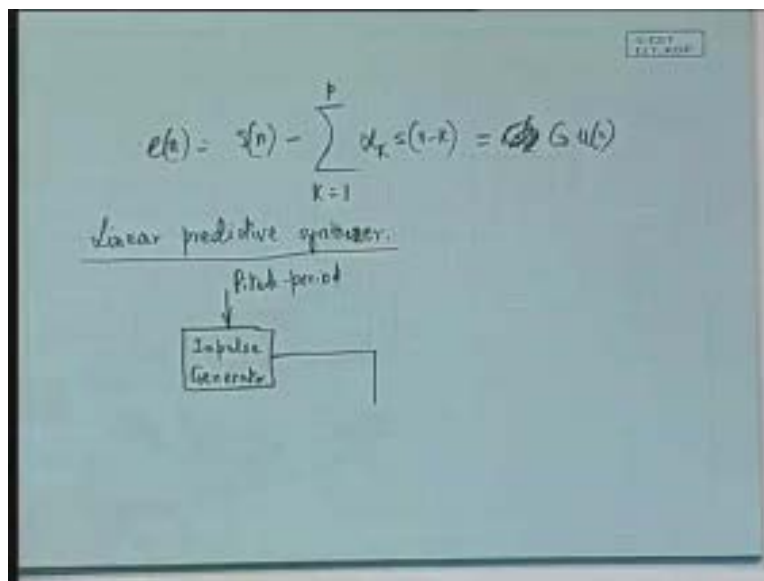 e(n) = s(n) - \sum_{k=1}^{p} α_k s(n-k) = G u(n)
Linear predictive synthesizer.
Pitch-period
Impulse
Generator